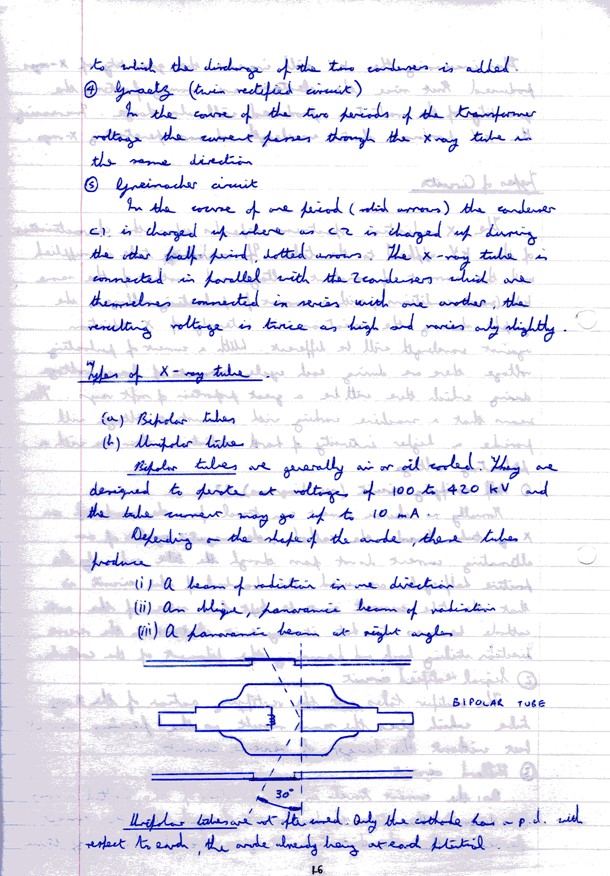 to which the discharge of the two condensers is added.
④ Graetz (twin rectified circuit)
In the course of the two periods of the transformer
voltage the current passes through the X ray tube in
the same direction
⑤ Greinacher circuit
In the course of one period (solid arrows) the condenser
C1, is charged up where as C2 is charged up during
the other half period, dotted arrows. The X-ray tube is
connected in parallel with the 2 condensers which are
themselves connected in series with one another, the
resulting voltage is twice as high and varies only slightly.
Types of X-ray tube.
(a) Bipolar tubes
(b) Unipolar tubes
Bipolar tubes are generally air or oil cooled. They are
designed to operate at voltages of 100 to 420 kV and
the tube current may go up to 10 mA.
Depending on the shape of the anode, these tubes
produce
(i) A beam of radiation in one direction
(ii) An oblique, panoramic beam of radiation
(iii) A panoramic beam at right angles
BIPOLAR TUBE
30°
Unipolar tubes are not often used. Only the cathode has a p.d. with
respect to earth, the anode already being at earth potential.
16